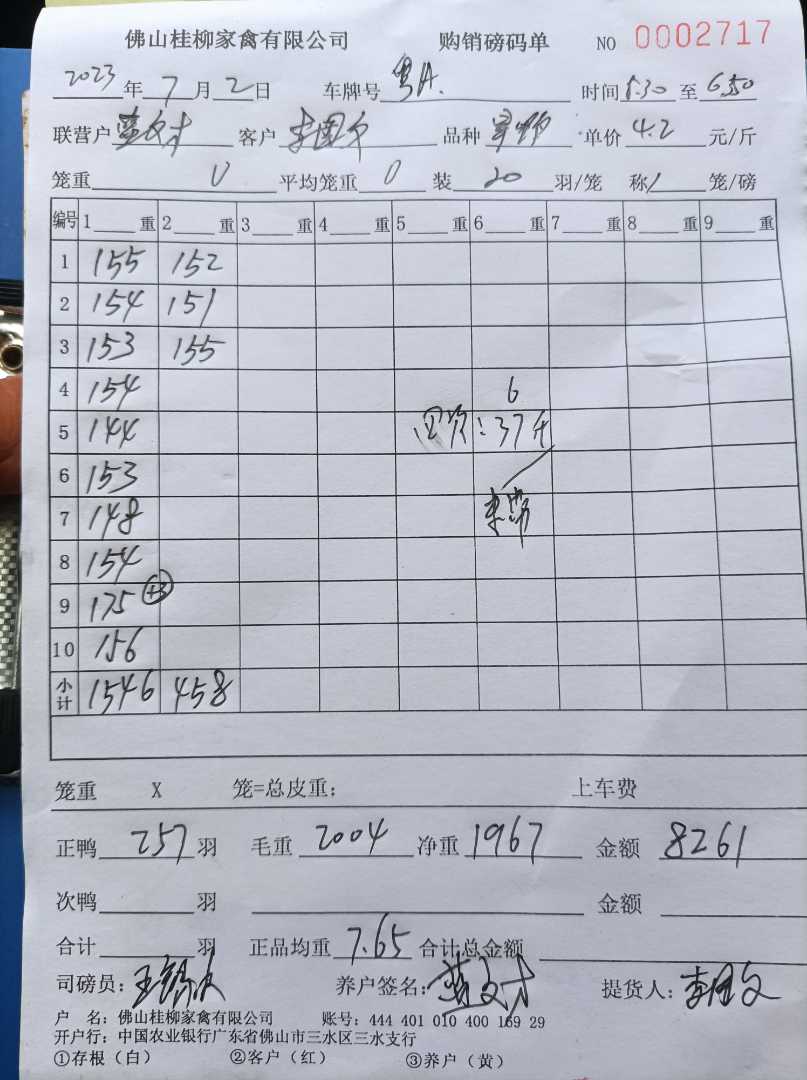 佛山桂柳家禽有限公司 购销磅码单 NO 0002717
2023年7月2日 车牌号 粤A. 时间5:30至6:50
联营户 客户 李国文 品种 单价4.2元/斤
笼重 0 平均笼重 0 装 20 羽/笼 称1笼/磅
编号 1____重 2____重 3____重 4____重 5____重 6____重 7____重 8____重 9____重
1 155 152
2 154 151
3 153 155
4 154 6
5 144 :37斤
6 153
7 148
8 154
9 175 +3
10 156
小计 1546 458
笼重 X 笼=总皮重: 上车费
正鸭 257 羽 毛重 2004 净重 1967 金额 8261
次鸭____羽 金额
合计____羽 正品均重 7.65 合计总金额
司磅员: 养户签名: 提货人: 李国文
户 名: 佛山桂柳家禽有限公司 账号: 444 401 010 400 169 29
开户行: 中国农业银行广东省佛山市三水区三水支行
①存根（白） ②客户（红） ③养户（黄）